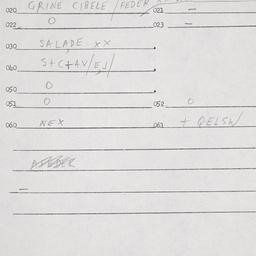 020 GRINE CIBELE / FEDER 021 —
022 O 023 —
030 SALADE XX
040 S+C+AV/EJ/
050 O
051 O 052 O
060 NEX 061 +